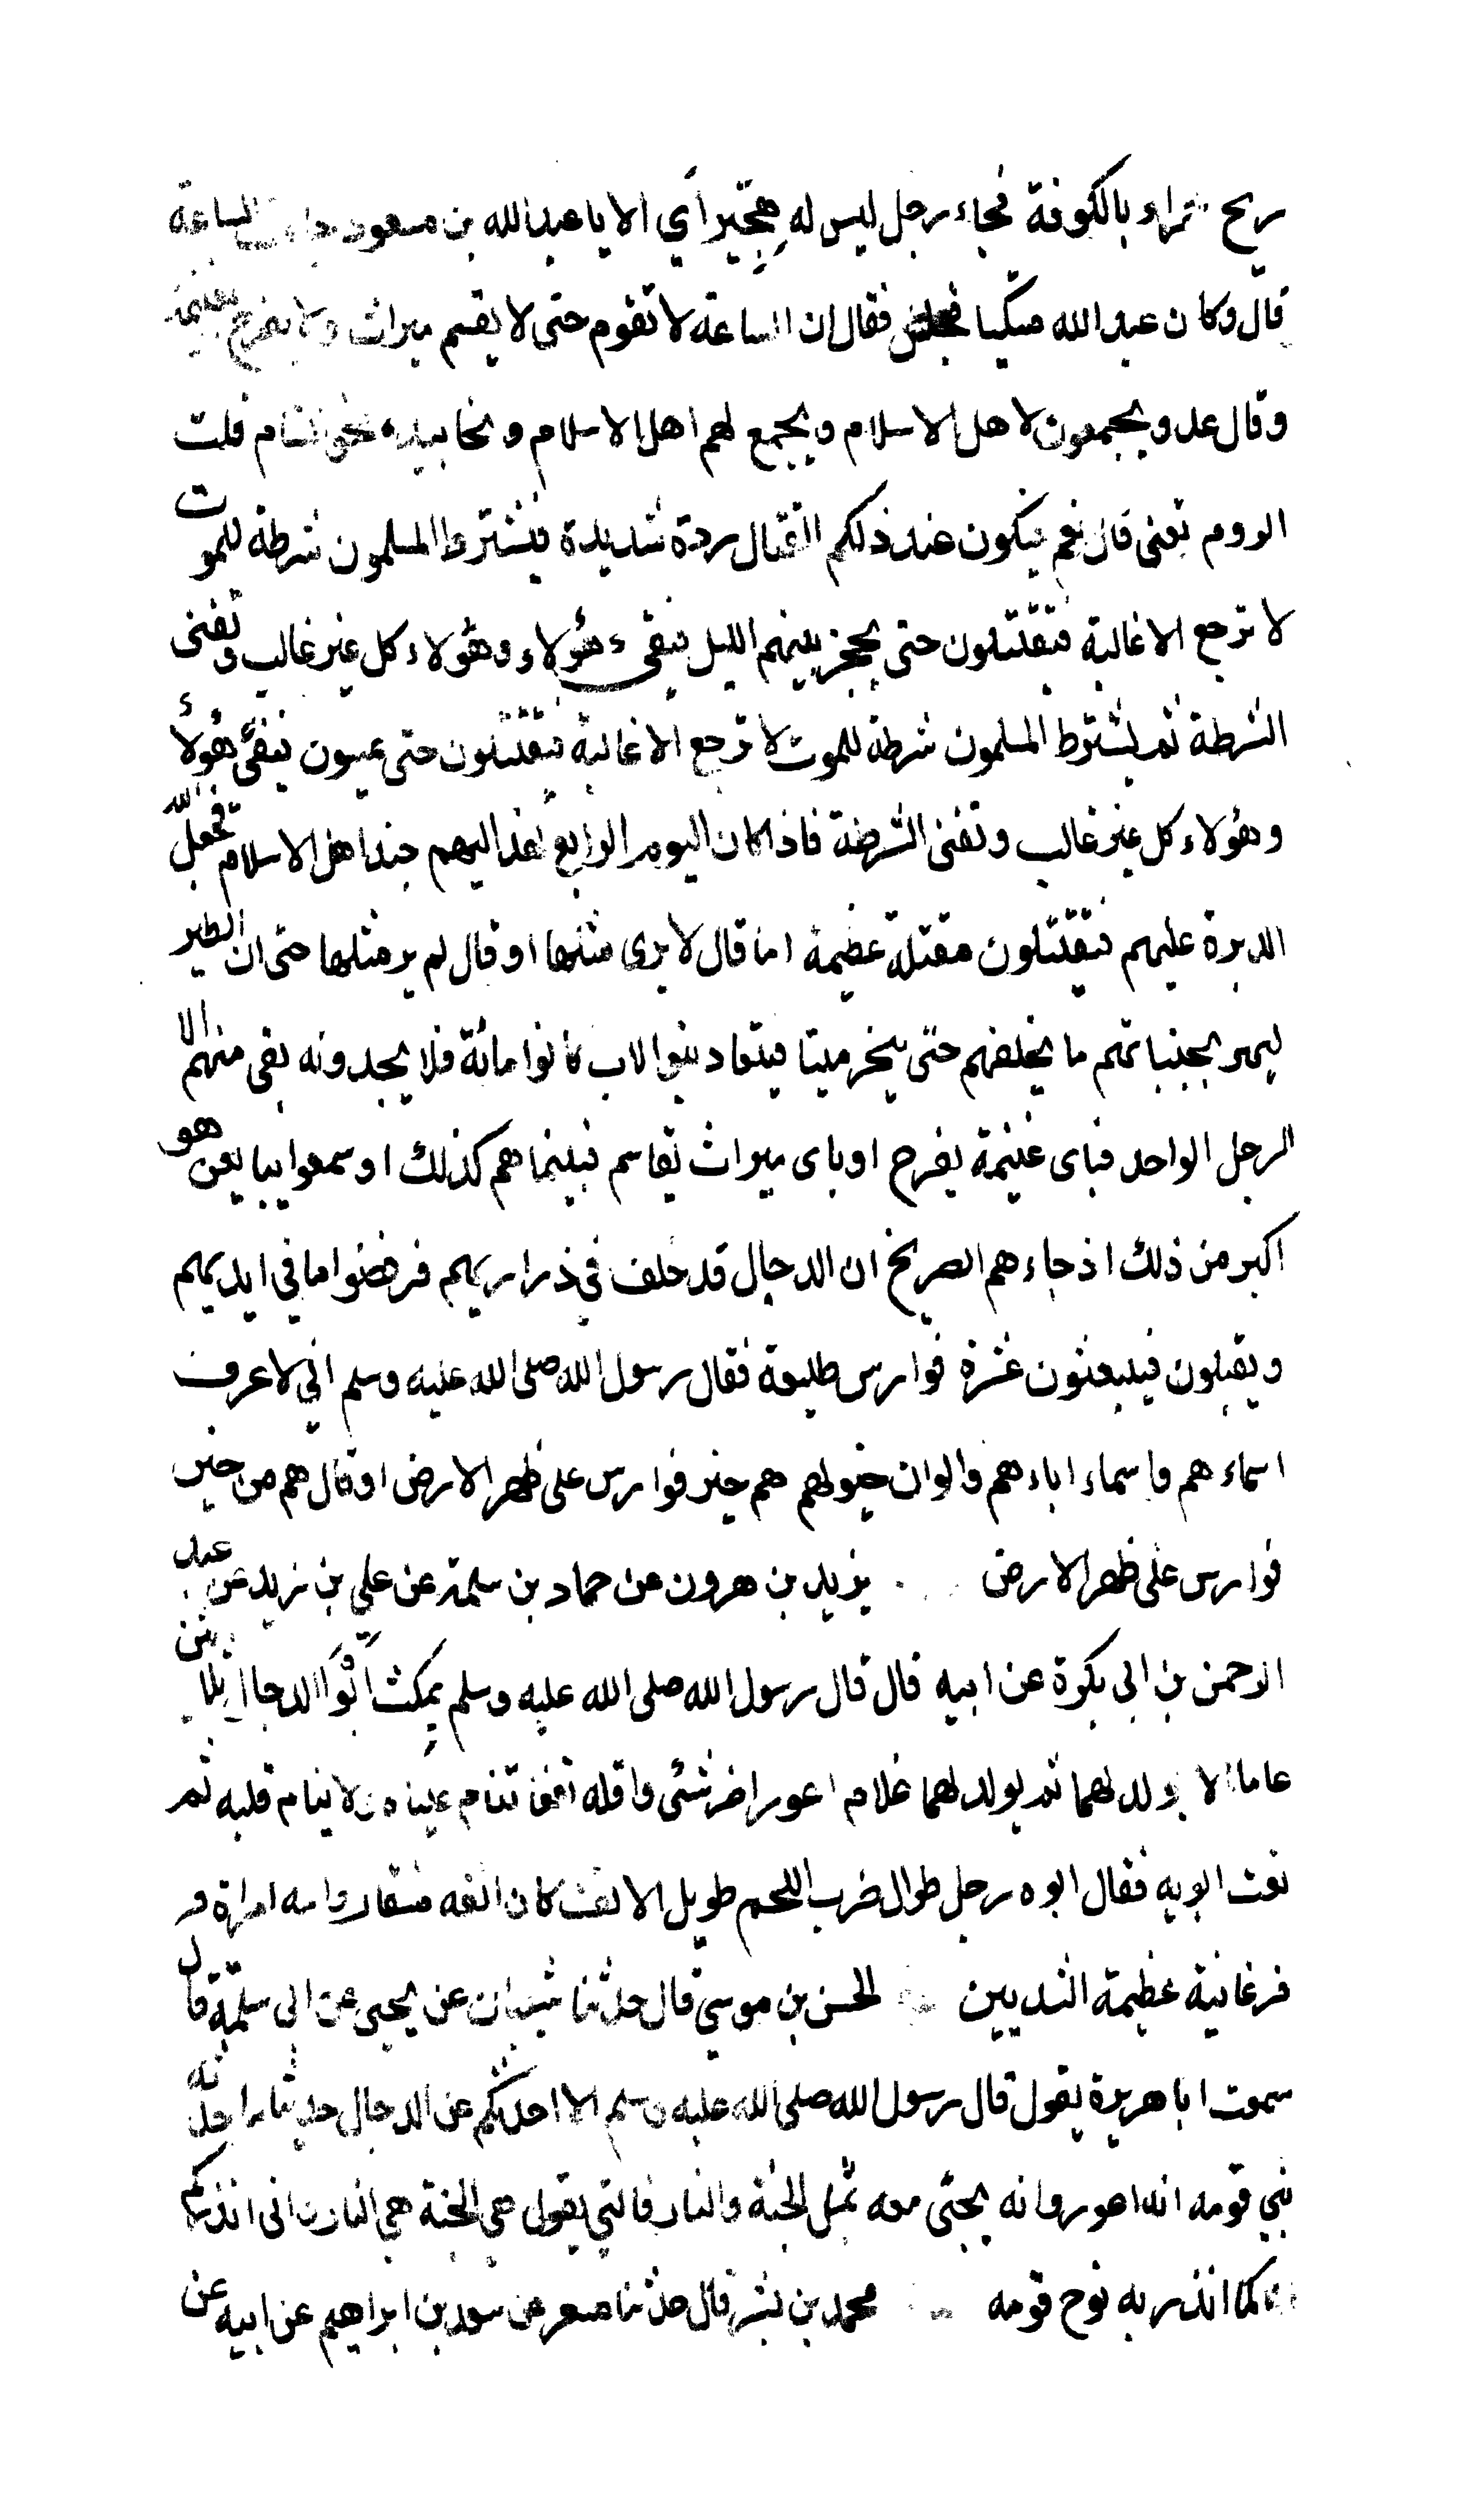 ريح حمراء بالكوفة فجاء رجل ليس له هجّيرأي الا يا عبد الله بن مسعود جاءت الساعة
قال وكان عبد الله متكيا فجلس فقال ان الساعة لا تقوم حتى لا يقسم ميراث ولا يفرح بغنيمة
وقال عدو يجمعون لاهل الاسلام ويجمع لهم اهل الاسلام ونحا بيده نحو الشام قلت
الروم تعنى قال نعم فيكون عند ذلكم القتال ردة شديدة فيشترط المسلمون شرطة للموت
لا ترجع الا غالبة فيقتتلون حتى يحجز بينهم الليل فيبقى هؤلاء وهؤلاء كل غير غالب وتفنى
الشرطة ثم يشترط المسلمون شرطة للموت لا ترجع الا غالبة فيقتتلون حتى يمسون فيفئ هؤلاء
وهؤلاء كل غير غالب وتفنى الشرطة فاذا كان اليوم الرابع نهد اليهم جند اهل الاسلام فجعل الله
الدبرة عليهم فيقتتلون مقتلة عظيمة اما قال لا يرى مثلها او قال لم ير مثلها حتى ان الطير
ليمر بجنباتهم ما يخلفهم حتى يخر ميتا فيتعاد بنوا الاب كانوا مائة فلا يجدونه بقى منهم الا
الرجل الواحد فباى غنيمة يفرح او باى ميراث يقاسم فبينما هم كذلك او سمعوا بباس هو
اكبر من ذلك اذ جاءهم الصريخ ان الدجال قد خلف في ذراريهم فرفضوا ما في ايديهم
ويقبلون فيبعثون عشرة فوارس طليعة فقال رسول الله صلى الله عليه وسلم اني لاعرف
اسماءهم واسماء اباءهم والوان خيولهم هم خير فوارس على ظهر الارض او قال هم من خير
فوارس على ظهر الارض يزيد بن هرون عن حماد بن سلمة عن علي بن زيد عن عبد
الرحمن بن ابى بكرة عن ابيه قال قال رسول الله صلى الله عليه وسلم يمكث ابوا الدجال ثلاثين
عاما لا يولد لهما ثم يولد لهما غلام اعور اضر شئى واقله نفعا تنام عيناه ولا ينام قلبه ثم
نعت ابويه فقال ابوه رجل طوال ضرب اللحم طويل الانف كان انفه منقار وامه امراة
فرغانية عظيمة الثديين الحسن بن موسي قال حدثنا شيبان عن يحيى عن ابى سلمة قال
سمعت ابا هريرة يقول قال رسول الله صلى الله عليه وسلم الا احدثكم عن الدجال حديثا ما حدثه
نبي قومه انه اعور وانه يجئى معه تمثل الجنة والنار فالتي يقول هي الجنة هي النار وانى انذركم
به كما انذر به نوح قومه محمد بن بشر قال حدثنا مسعر عن سعد بن ابراهيم عن ابيه عن